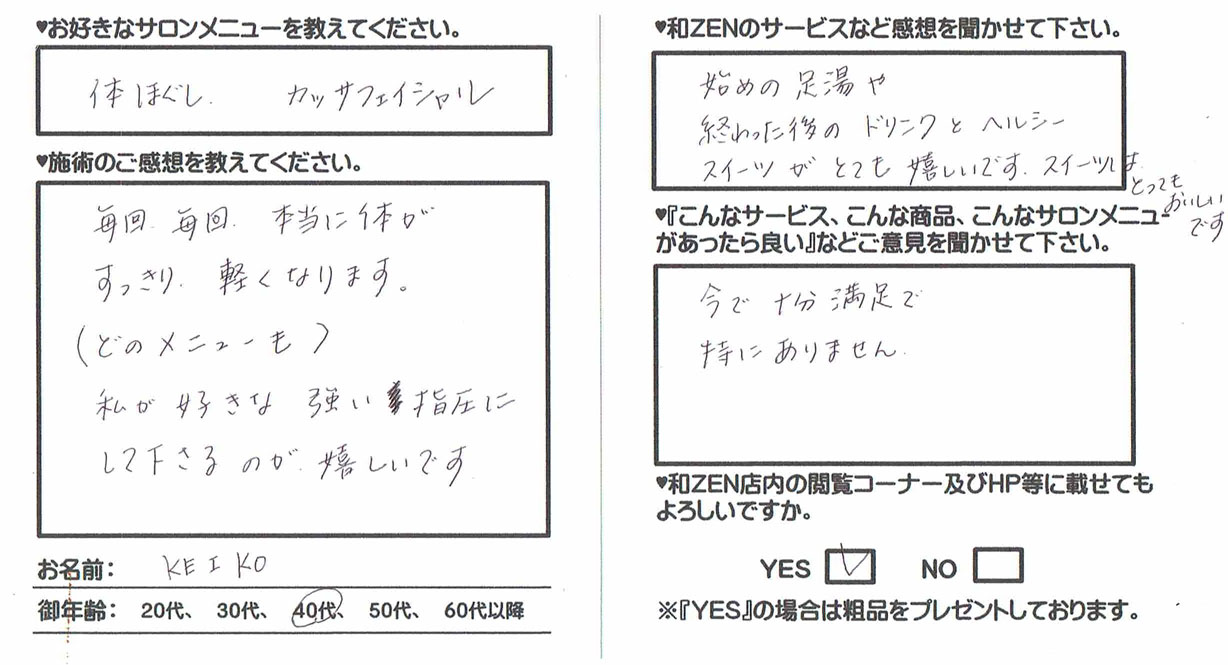 ♥お好きなサロンメニューを教えてください。
体ほぐし. カッサフェイシャル
♥施術のご感想を教えてください。
毎回. 毎回. 本当に体が
すっきり. 軽くなります。
(どのメニューも)
私が好きな 強い 指圧に
して下さるのが. 嬉しいです
お名前: KEIKO
御年齢: 20代、 30代、 40代、 50代、 60代以降
♥和ZENのサービスなど感想を聞かせて下さい。
始めの足湯や
終わった後の ドリンクと ヘルシー
スイーツが とても 嬉しいです. スイーツは.
とっても
おいしい
です
♥『こんなサービス、こんな商品、こんなサロンメニュー
があったら良い』などご意見を聞かせて下さい。
今で 十分 満足で
特にありません.
♥和ZEN店内の閲覧コーナー及びHP等に載せても
よろしいですか。
YES ✓ NO
※『YES』の場合は粗品をプレゼントしております。